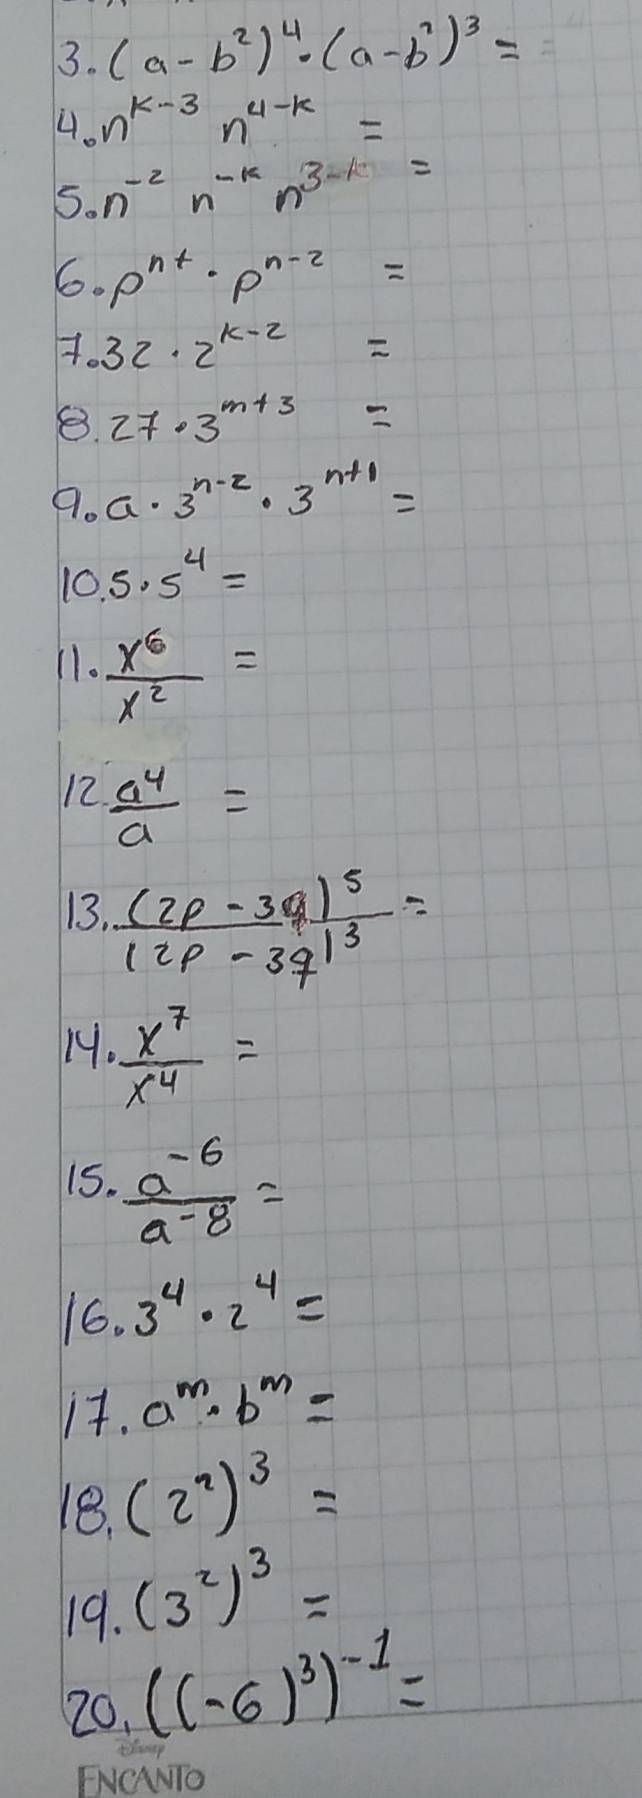 3. (a - b²)⁴ · (a - b²)³ =
4. n^{k-3} n^{4-k} =
5. n^{-2} n^{-k} n^{3-k} =
6. p^{n+} · p^{n-2} =
7. 32 · 2^{k-2} =
8. 27 · 3^{m+3} =
9. a · 3^{n-2} · 3^{n+1} =
10. 5 · 5⁴ =
11. x⁶ / x² =
12. a⁴ / a =
13. (2p - 3q)⁵ / (2p - 3q)³ =
14. x⁷ / x⁴ =
15. a^{-6} / a^{-8} =
16. 3⁴ · 2⁴ =
17. a^m · b^m =
18. (2²)³ =
19. (3²)³ =
20. ((-6)³)^{-1} =
Disney
ENCANTO